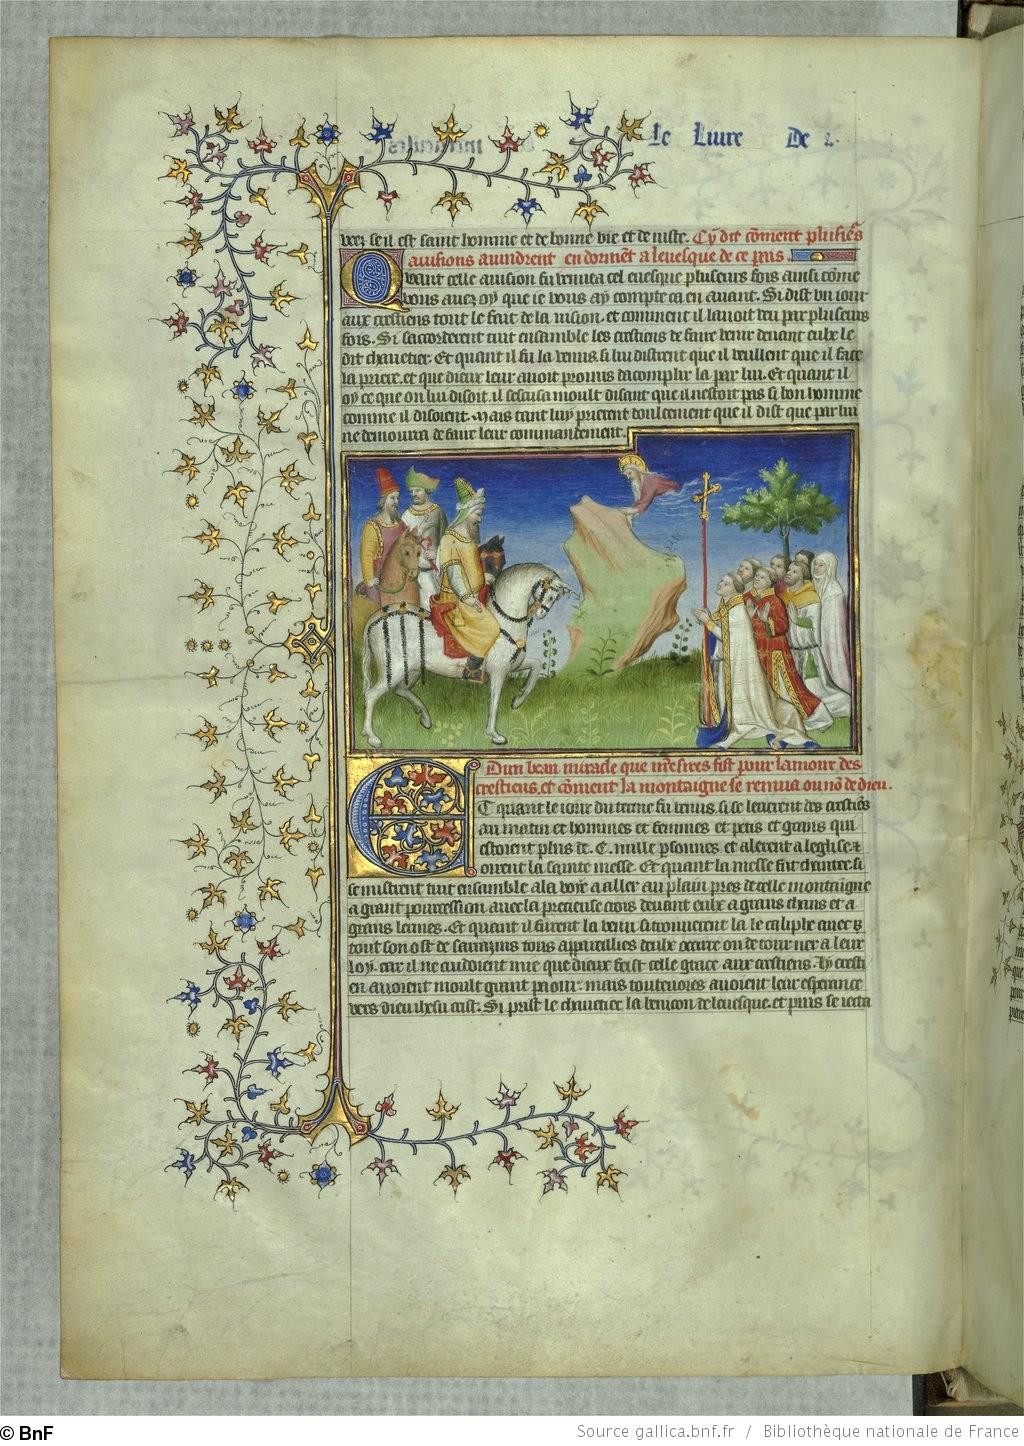 Le Liure De
vees se il est saint homme et de bonne vie et de iuste. Cy dit cõment plusieᷣs
auisions auindrent en dormẽt a leuesque de ce pais.
Quant celle auision fu venue a cel euesque pluseurs fois ainsi cõme
vous auez oy que ie vous ay compte ca en auant. Si dist vn iour
aux crestiens tout le fait de la uision. et comment il lauoit veu par pluseurs
fois. Si sacorderent tuit ensamble les crestiens de faire venir deuant eulx le
dit chauetier. Et quant il fu la venus. si lui distrent que il veullent que il face
la priere. et que dieux leur auoit promis dacomplir la par lui. Et quant il
oy ce que on lui disoit. il sescusa moult disant que il nestoit pas si bon homme
comme il disoient. Mais tant luy prierent doulcement que il dist que par lui
ne demoura de faire leur commandement.
Dun beau miracle que nr̃e sires fist pour lamour des
crestiens. et cõment la montaigne se remua ou nõ de dieu.
Et quant le iour du terme fu venus. si se leuerent des crestiẽs
au matin et hommes et femmes et petis et grans qui
estoient plus de .C. mille p̱sonnes. et alerent a leglise. et
oirent la sainte messe. Et quant la messe fut chantee. si
se mistrent tuit ensamble a la voye a aller au plain pres de celle montaigne
a grant pourcession auec la precieuse crois deuant eulx a grans chans et a
grans lermes. Et quant il furent la venu. si trouuerent la le caliphe auec
tout son ost de sarrazins tous appareillies deulx occire ou de tourner a leur
loy. car il ne cuidoient mie que dieux feist celle grace aux crestiens. Ly cresti
en auoient moult grant paour. mais touteuoies auoient leur esperance
vers dieu ihesu crist. Si prist le chauetier la beneicon de leuesque. et puis se ieta
© BnF
Source gallica.bnf.fr / Bibliothèque nationale de France